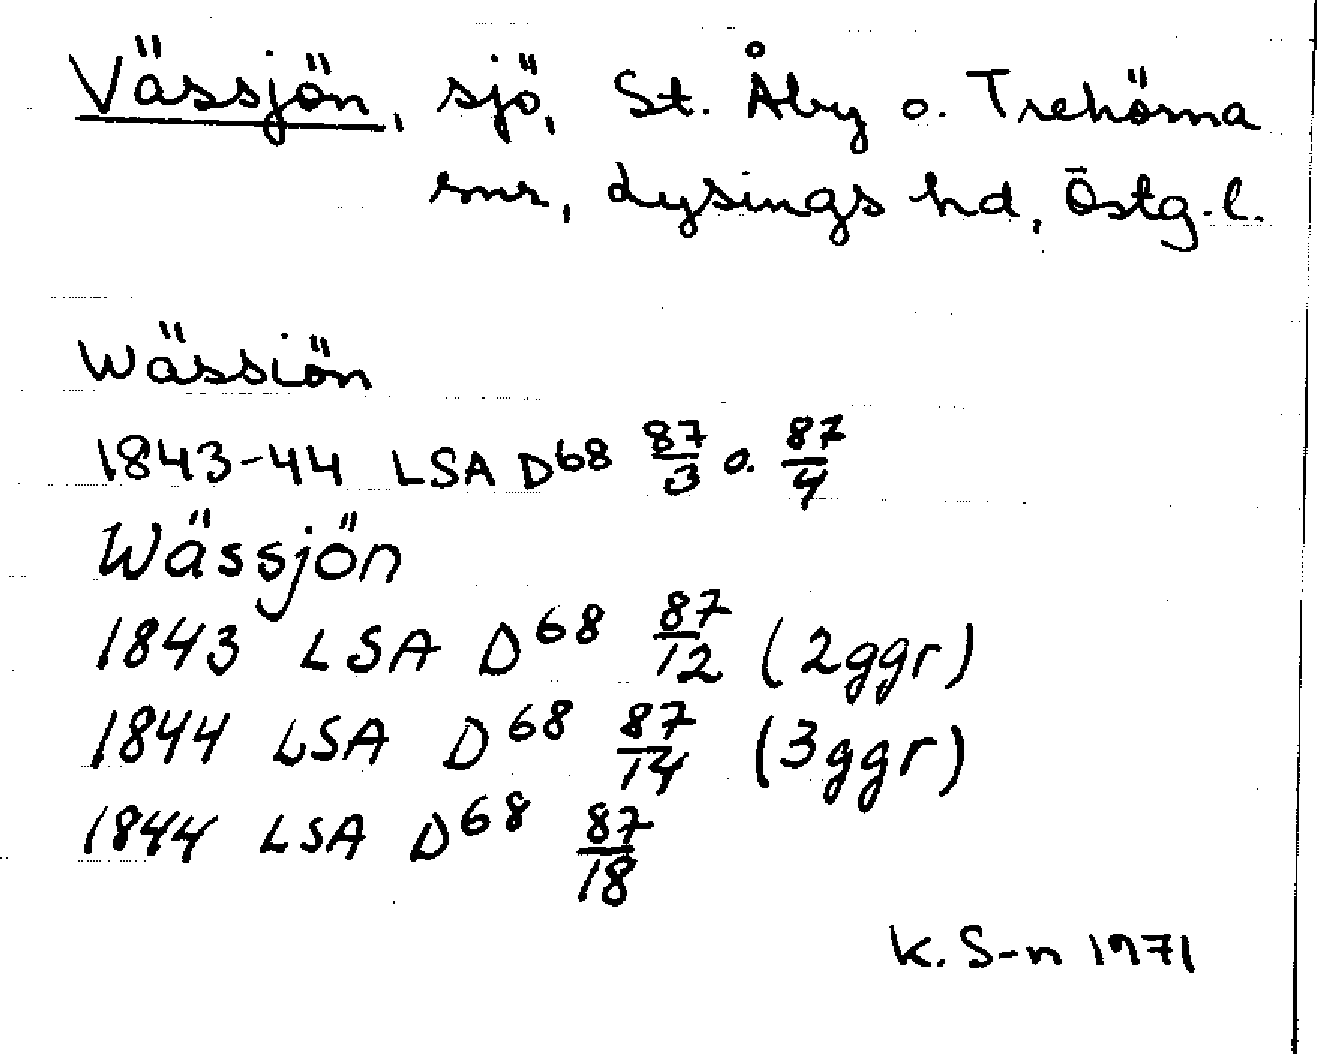 Vässjön, sjö, St. Åby o. Trehörna
snr, Lysings hd, Östg. l.
Wässiön
1843-44 LSA D68 87/3 o. 87/4
Wässjön
1843 LSA D68 87/12 (2ggr)
1844 LSA D68 87/14 (3ggr)
1844 LSA D68 87/18
K. S-n 1971